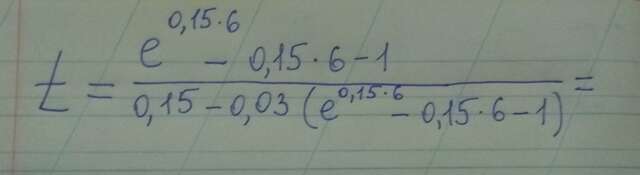 t = (e^(0,15·6) − 0,15·6−1) / (0,15−0,03(e^(0,15·6) − 0,15·6−1)) =